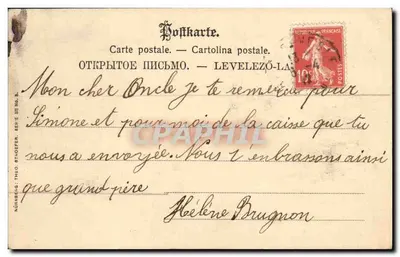 Postkarte.
Carte postale. — Cartolina postale.
ОТКРЫТОЕ ПИСЬМО. — LEVELEZŐ-LA
10
POSTES
Mon cher Oncle je te remercie pour
Simone et pour moi de la caisse que tu
nous a envoyée. Nous t'enbrassons ainsi
que grand père
Hélène Brugnon
CPARHIL